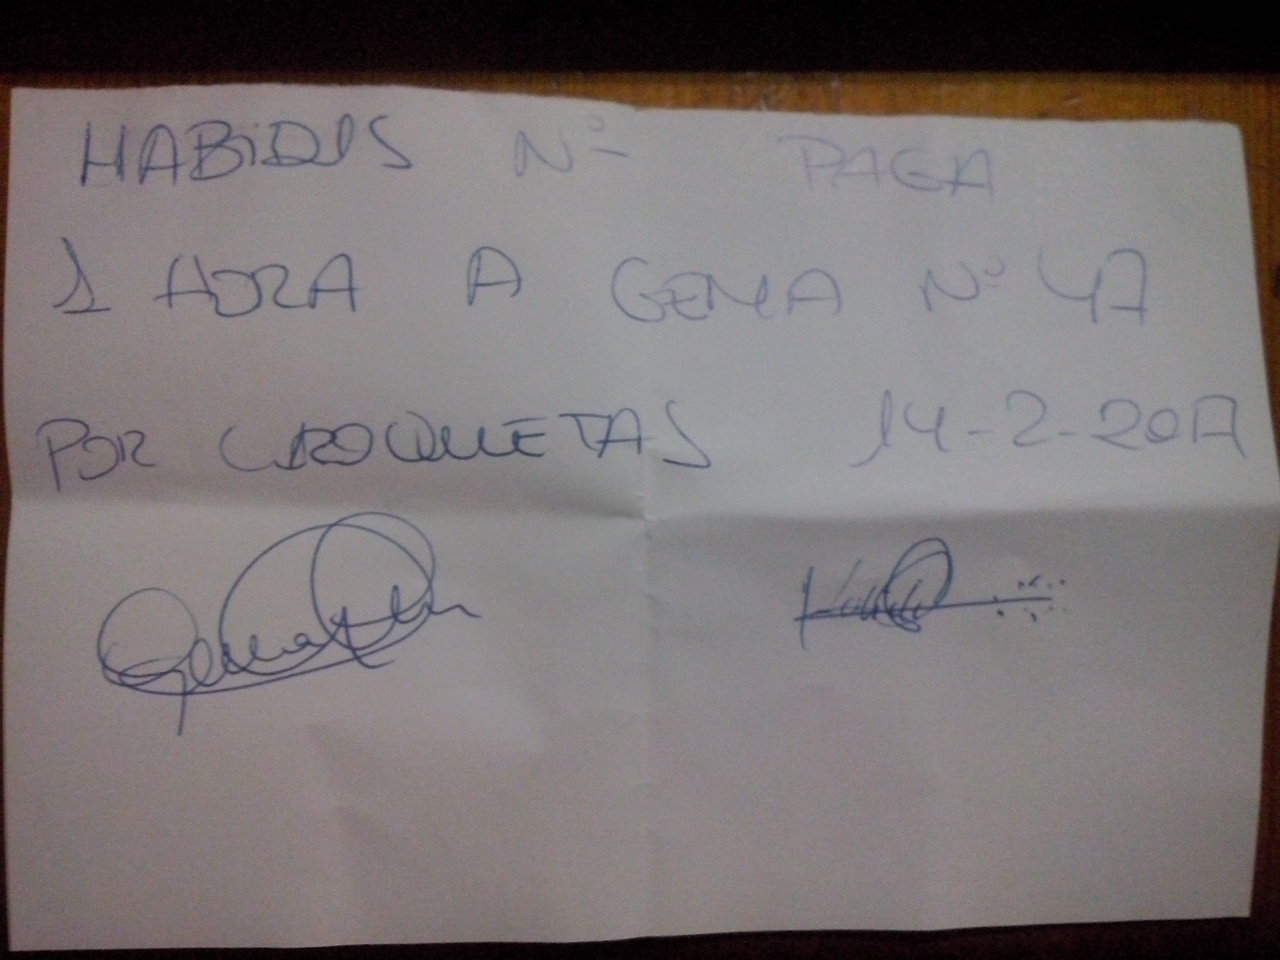 HABIDIS Nº PAGA
1 HORA A GEMA Nº 47
POR CROQUETAS 14-2-2017